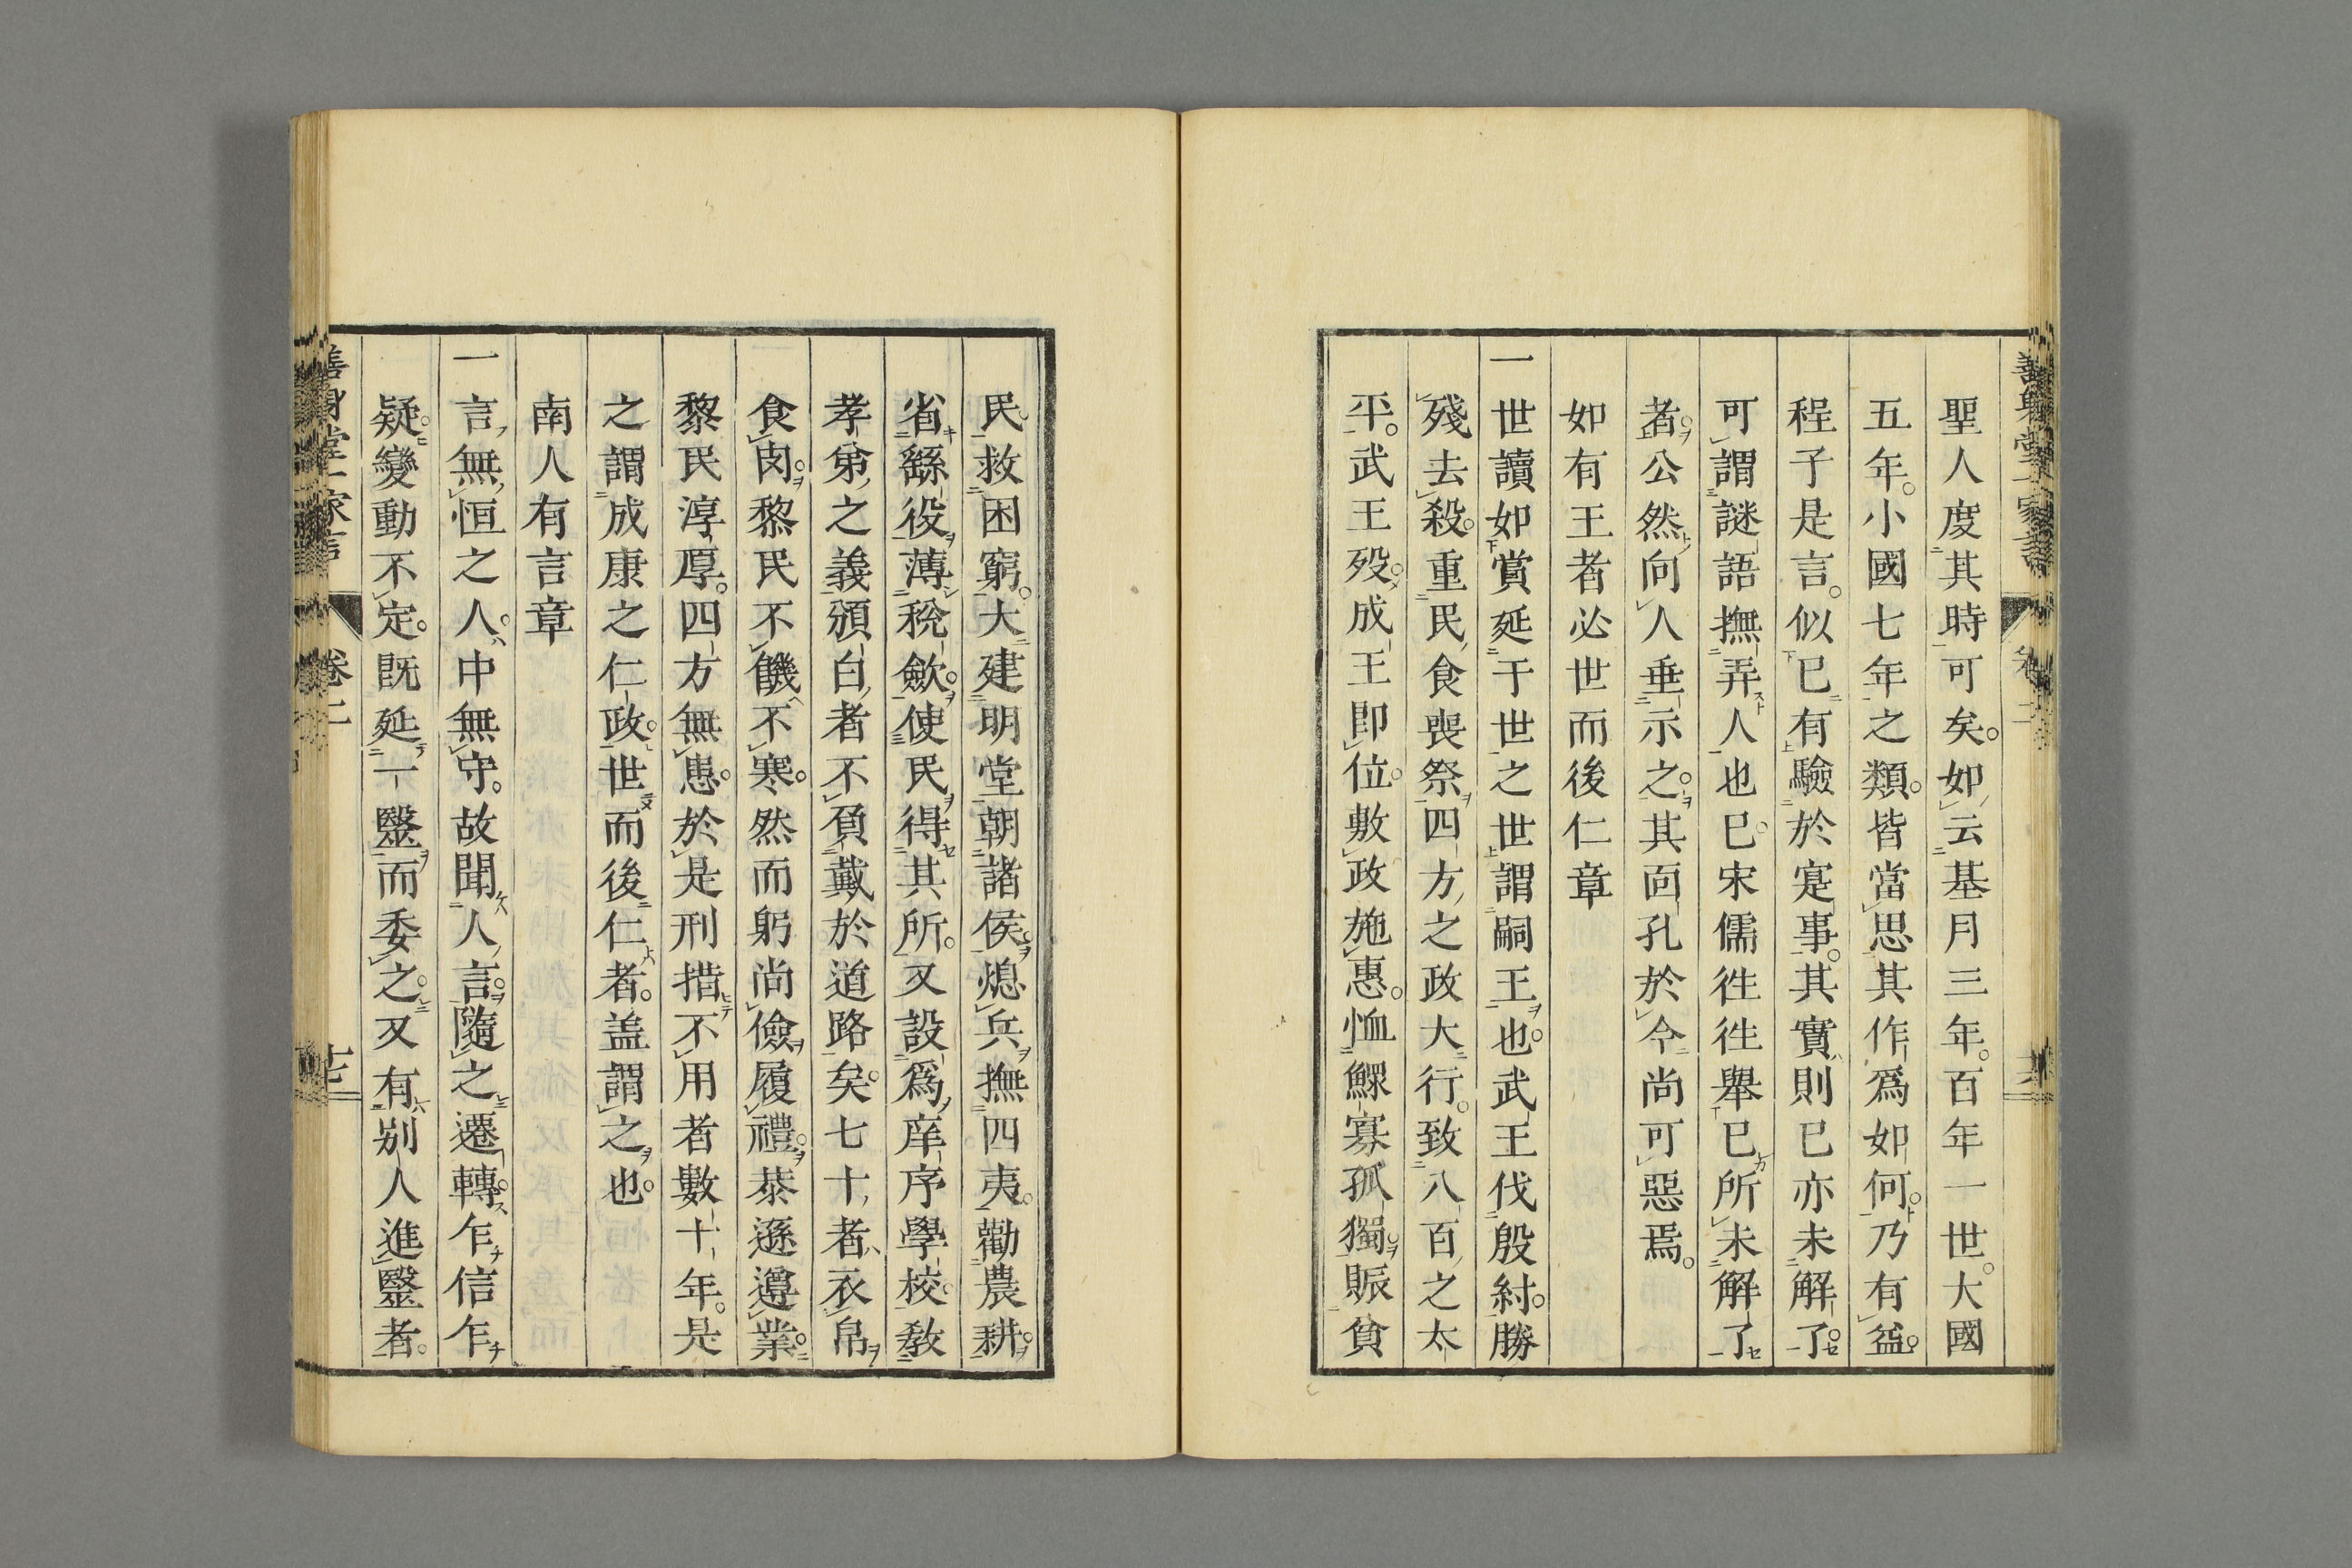 聖人度其時可矣如云基月三年百年一世大國
五年小國七年之類皆當思其作爲如何乃有益
程子是言似已有驗於寔事其實則已亦未解了
可謂謎語撫弄人也已宋儒徃徃舉已所未解了
者公然向人垂示之其面孔於今尚可惡焉
如有王者必世而後仁章
一世讀如賞延于世之世謂嗣王也武王伐殷紂勝
殘去殺重民食喪祭四方之政大行致八百之太
平武王殁成王即位敷政施惠恤鰥寡孤獨賑貧
民救困窮大建明堂朝諸侯熄兵撫四夷勸農耕
省繇役薄稅歛使民得其所又設爲庠序學校敎
孝弟之義頒白者不負戴於道路矣七十者衣帛
食肉黎民不饑不寒然而躬尚儉履禮恭遜遵業
黎民淳厚四方無患於是刑措不用者數十年是
之謂成康之仁政世而後仁者盖謂之也
南人有言章
一言無恒之人中無守故聞人言隨之遷轉乍信乍
疑變動不定既延一毉而委之又有別人進毉者
善身堂一家言 卷二 十二